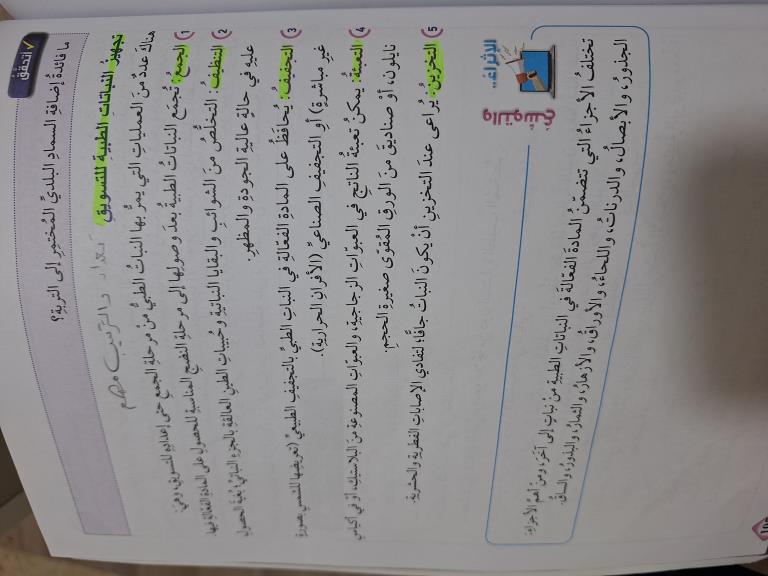 ✓ أتحقَّقُ
ما فائدةُ إضافةِ السمادِ البلديِّ المُختمِرِ إلى التربةِ؟
تجهيزُ النباتاتِ الطبيةِ للتسويقِ
تعداد بالترتيب مهم
هناكَ عددٌ منَ العملياتِ التي يمرُّ بها النباتُ الطبيُّ منْ مرحلةِ الجمعِ حتى إعدادِهِ للتسويقِ، وهيَ:
1 الجمعُ: تُجمَعُ النباتاتُ الطبيةُ بعدَ وصولِها إلى مرحلةِ النضجِ المناسبةِ للحصولِ على المادةِ الفعّالةِ فيها.
2 التنظيفُ: التخلُّصُ منَ الشوائبِ والبقايا النباتيةِ وحُبيباتِ الطينِ العالقةِ بالجزءِ النباتيِّ؛ بُغيةَ الحصولِ
عليهِ في حالةٍ عاليةِ الجودةِ والمظهرِ.
3 التجفيفُ: يُحافَظُ على المادةِ الفعّالةِ في النباتِ الطبيِّ بالتجفيفِ الطبيعيِّ (تعريضِها للشمسِ بصورةٍ
غيرِ مباشرةٍ) أوِ التجفيفِ الصناعيِّ (الأفرانِ الحراريةِ).
4 التعبئةُ: يمكنُ تعبئةُ الناتجِ في العبوّاتِ الزجاجيةِ، والعبوّاتِ المصنوعةِ منَ البلاستيكِ، أوْ في أكياسِ
نايلون، أوْ صناديقَ منَ الورقِ المُقوّى صغيرةِ الحجمِ.
5 التخزينُ: يُراعى عندَ التخزينِ أنْ يكونَ النباتُ جافًّا؛ لتفادي الإصاباتِ الفطريةِ والحشريةِ.
الإثراءُ
والتوسّعُ
تختلفُ الأجزاءُ التي تتضمّنُ المادةَ الفعّالةَ في النباتاتِ الطبيةِ منْ نباتٍ إلى آخَرَ، ومنْ أهمِّ الأجزاءِ:
الجذورُ، والأبصالُ، والدرناتُ، واللحاءُ، والأوراقُ، والأزهارُ، والثمارُ، والبذورُ، والساقُ.